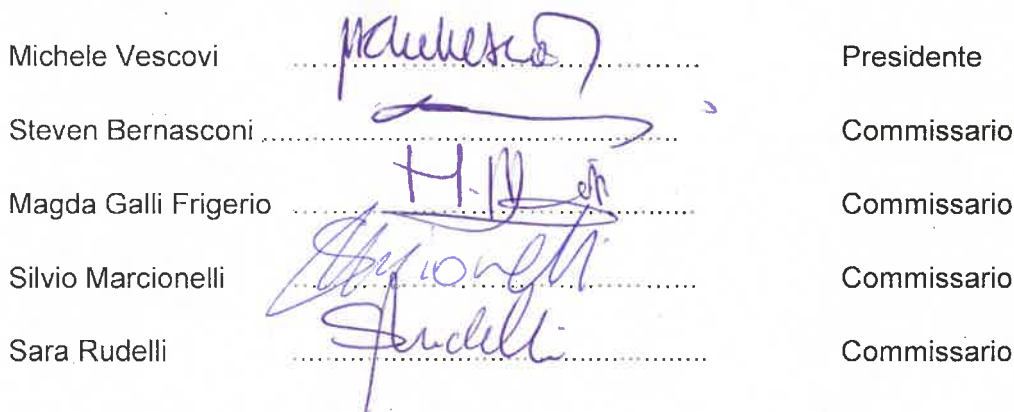 Michele Vescovi .......... Presidente
Steven Bernasconi .......... Commissario
Magda Galli Frigerio .......... Commissario
Silvio Marcionelli .......... Commissario
Sara Rudelli .......... Commissario